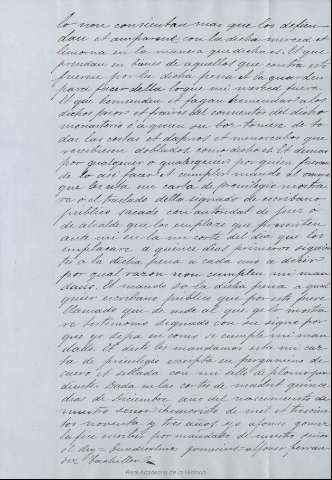 lo non consientan mas que los defien
dan et amparend con la dicha merced et
limosna en la manera que dicha es. Et que
prendan en bienes de aquellos que contra esto
fueren por la dicha pena et la guarden
para facer della lo que mi merced fuere.
Et que hemienden et fagan hemendar a los
dichos prior et frayres del conuento del dicho
monasterio o a quien su boz touiere de to
das las costas et daños et menoscabos que
recibieren doblados, como dicho es. Et demas
por qualquier o qualesquier por quien fincar
de lo asi facer et cumplir mando al omme
que les esta mi carta de preuilegio mostra
re o el traslado della signado de escribano
publico sacado con autoridad de juez o
de alcalde que los emplaze que parescan
ante mi en la mi corte del dia que los
emplazare a quinze dias primeros siguien
tes so la dicha pena a cada uno a dezir
por qual razon non cumplen mi man
dado. Et mando so la dicha pena a qual
quier escribano publico que por esto fuere
llamado que de ende al que gelo mostra
re testimonio signado con su signo por
que yo sepa en como se cumple mi man
dado. Et desto les mandamos esta mi car
ta de preuilegio escripta en pergamino de
cuero et sellada con mi sello de plomo pen
diente. Dada en las cortes de madrit quince
dias de Diciembre año del nascimiento de
nuestro señor ihesucristo de mil et trescien
tos noventa y tres años yo alfonso gomez
la fice escribir por mandado de nuestro señor
el rey =
alfonso fernan
dez
Real Academia de la Historia